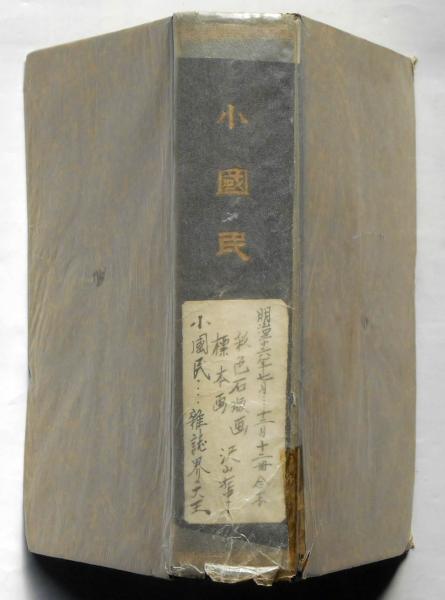 小國民
明治廿六年七月…十二月十二冊合本
彩色石版画
標本画 沢山
小國民…雑誌界ノ大王